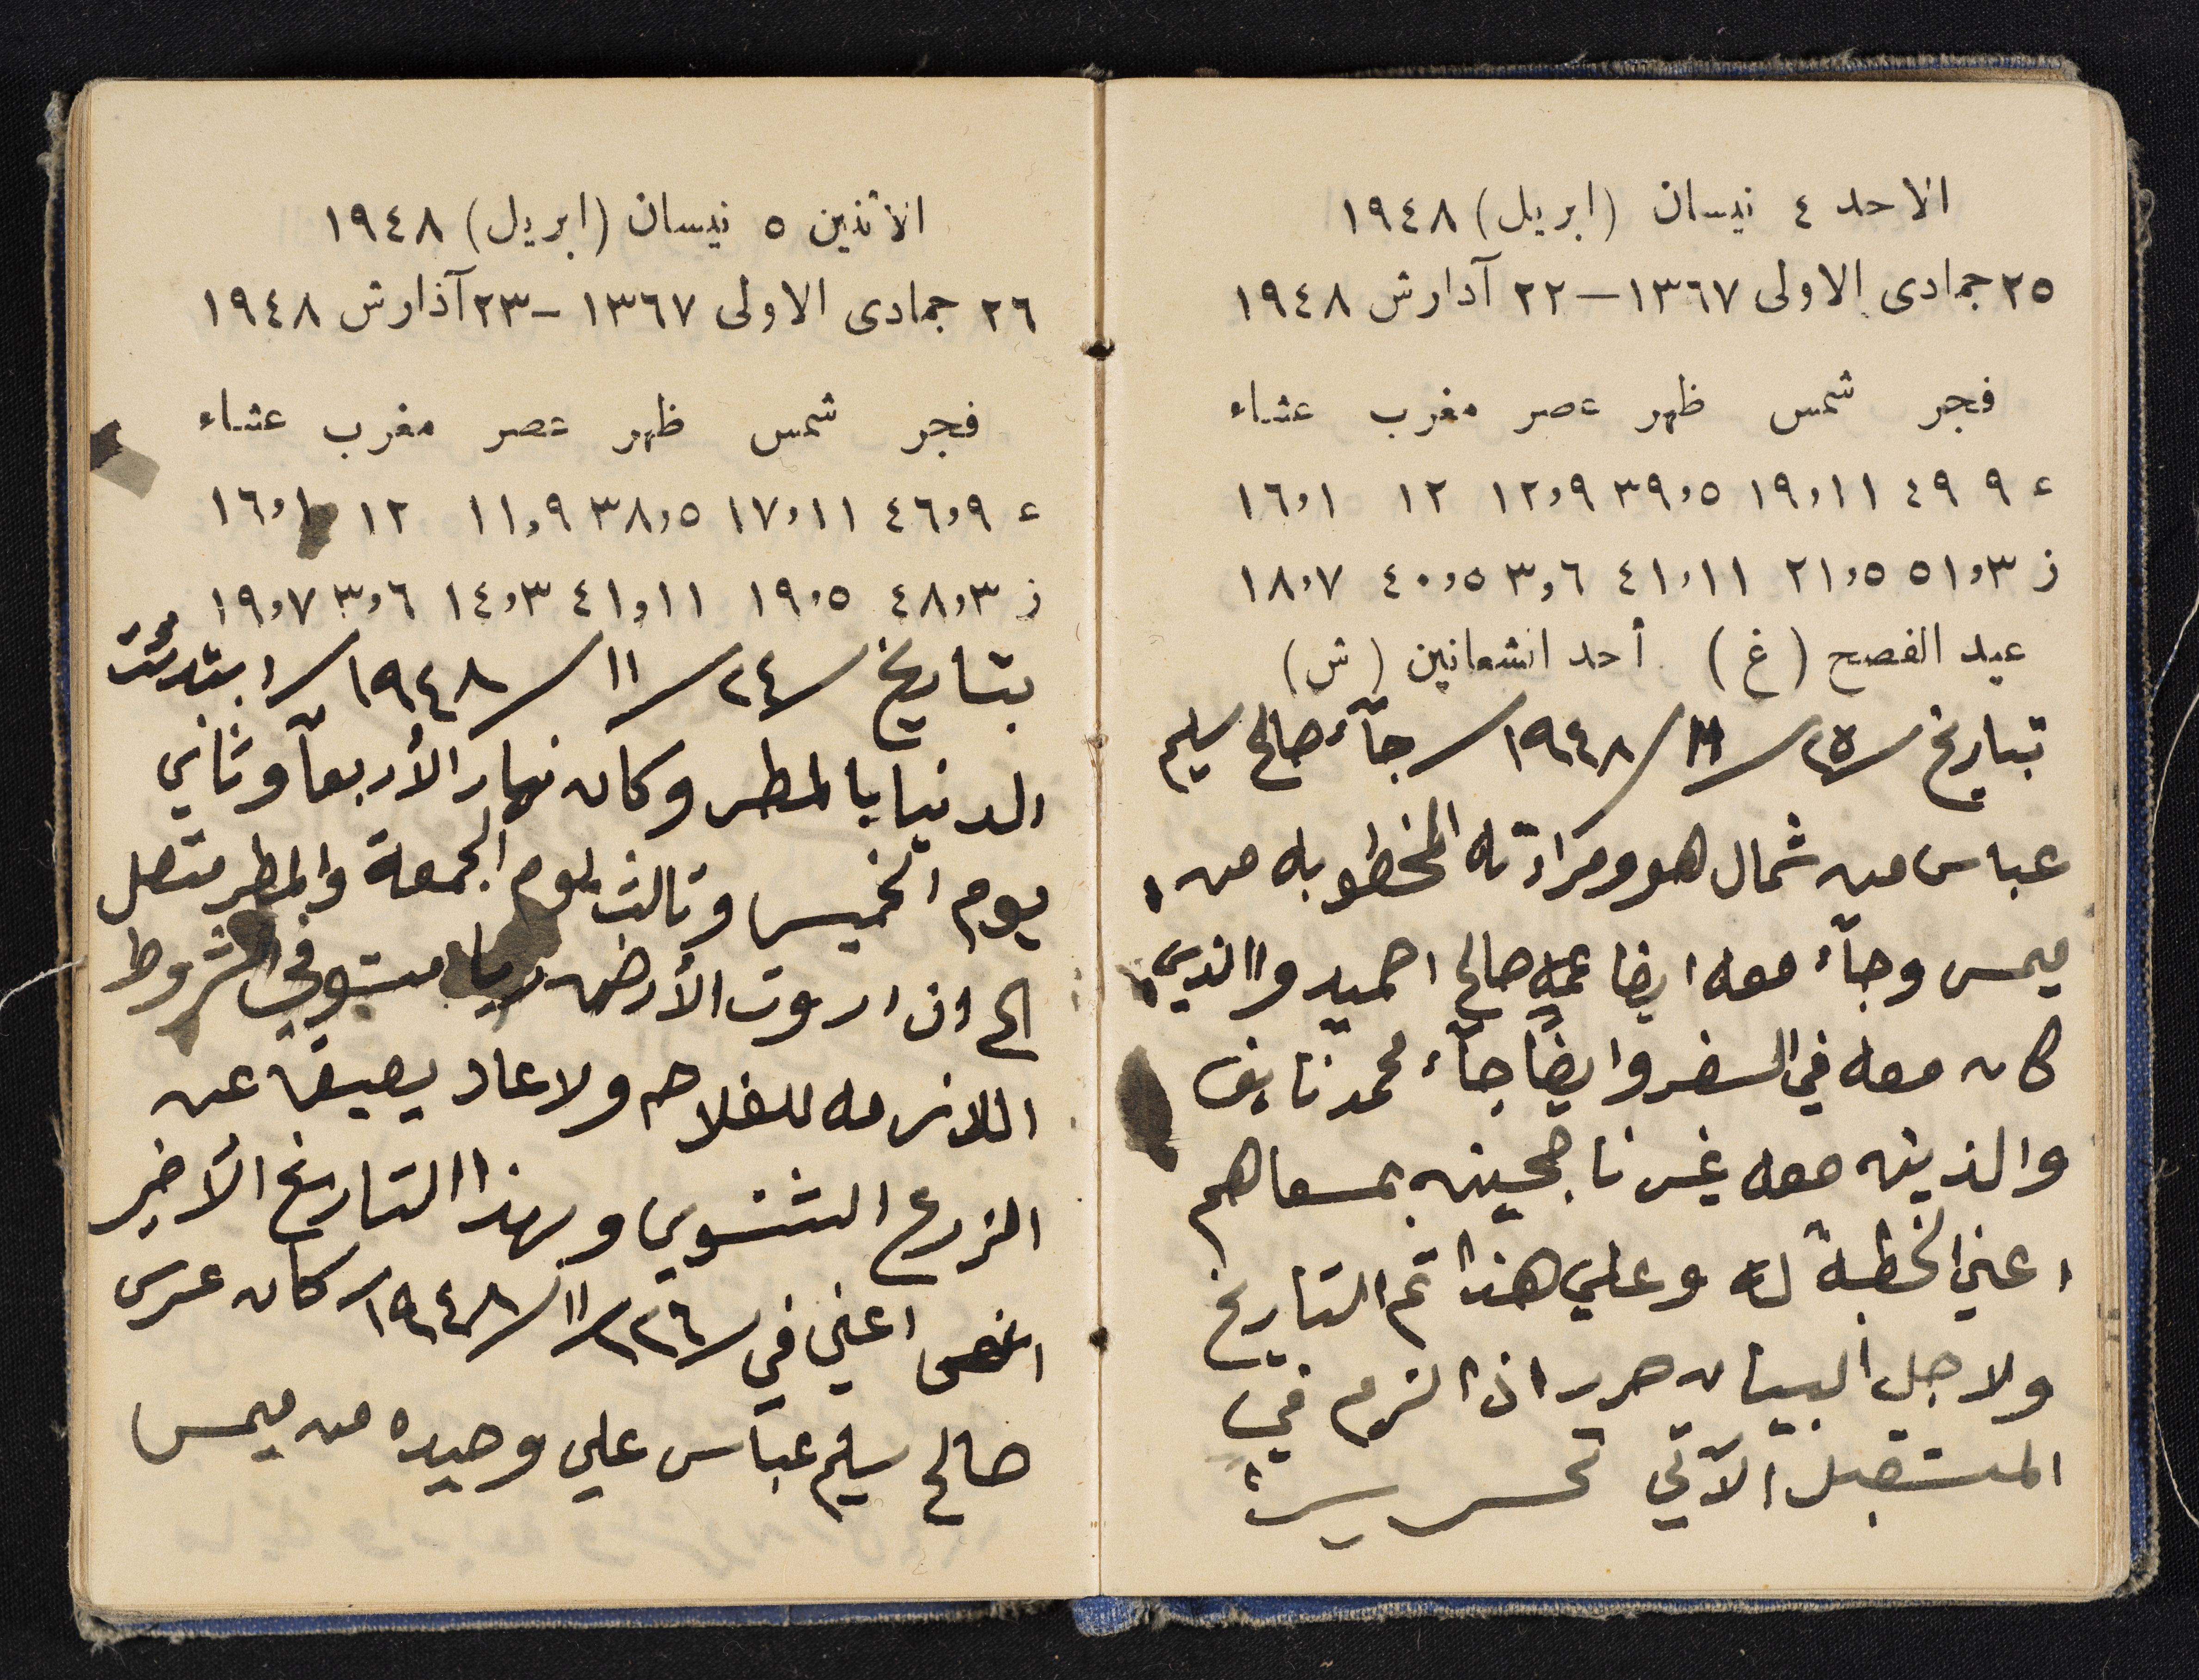 الاحد ٤ نيسان (ابريل) ١٩٤٨
٢٥ جمادى الاولى ١٣٦٧ – ٢٢ آدارش ١٩٤٨
فجر شمس ظهر عصر مغرب عشاء
ع ٩ ٤٩ ١٩،١١ ٣٩،٥ ١٢،٩ ١٢ ١٦،١
ز ٥١،٣ ٢١،٥ ٤١،١١ ٣،٦ ٤٠،٥ ١٨،٧
عيد الفصح (غ) أحد الشعانين (ش)
بتاريخ ٢٥/١١/١٩٤٨/ جآء صالح سليم
عباس من شمال هو ومراءته المخطوبه من
ميمس وجآء معه ايضا عمه صالح احميد والذي
كان معه في السفر وايضًا جآء محمد نايف
والذين معه غير ناجحين بمسعاهم
اعني الخطبة له وعلي هذا تم التاريخ
ولاجل البيان حرر اذا لزم في
المستقبل الآتي تحريرًا
الاثنين ٥ نيسان (ابريل) ١٩٤٨
٢٦ جمادى الاولى ١٣٦٧ – ٢٣ آذارش ١٩٤٨
فجر شمس ظهر عصر مغرب عشاء
ع ٤٦،٩ ١٧،١١ ٣٨،٥ ١١،٩ ١٢ ١٦،١
ز ٤٨،٣ ١٩،٥ ٤١،١١ ١٤،٣ ٣،٦ ١٩،٧
بتاريخ /٢٤/١١/١٩٤٨/ ابتدئت
الدنيا بالمطر وكان نهار الأربعآ وثاني
يوم الخميس وثالث يوم الجمعة والمطر متصل
الى ان اروت الأرض ريا مستوفي الشروط
اللازمه للفلاحه ولا عاد يعيق عن
الزرع الشتوي وبهذا التاريخ الآخير
اعني في /٢٦/١١/١٩٤٨/ كان عرس
صالح سليم عباس علي وحيده من ميمس